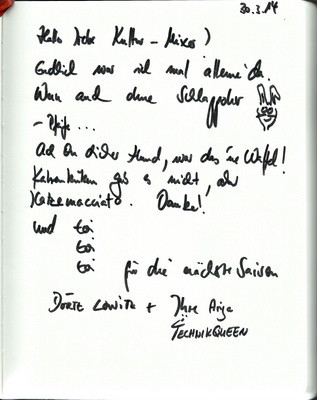 30.3.14
Hallo liebe Kultur-Mixer)
Endlich war ich mal alleine da.
Wenn auch ohne Schlappohr
- Pfeife...
Ach Du dicker Hund, war das 'ne Wifel!
gab es nicht, aber
Katzemacciato. Danke!
und toi
toi
toi
für die nächste Saison
Dörte Lowitz + Ihre Anja
TECHNIKQUEEN